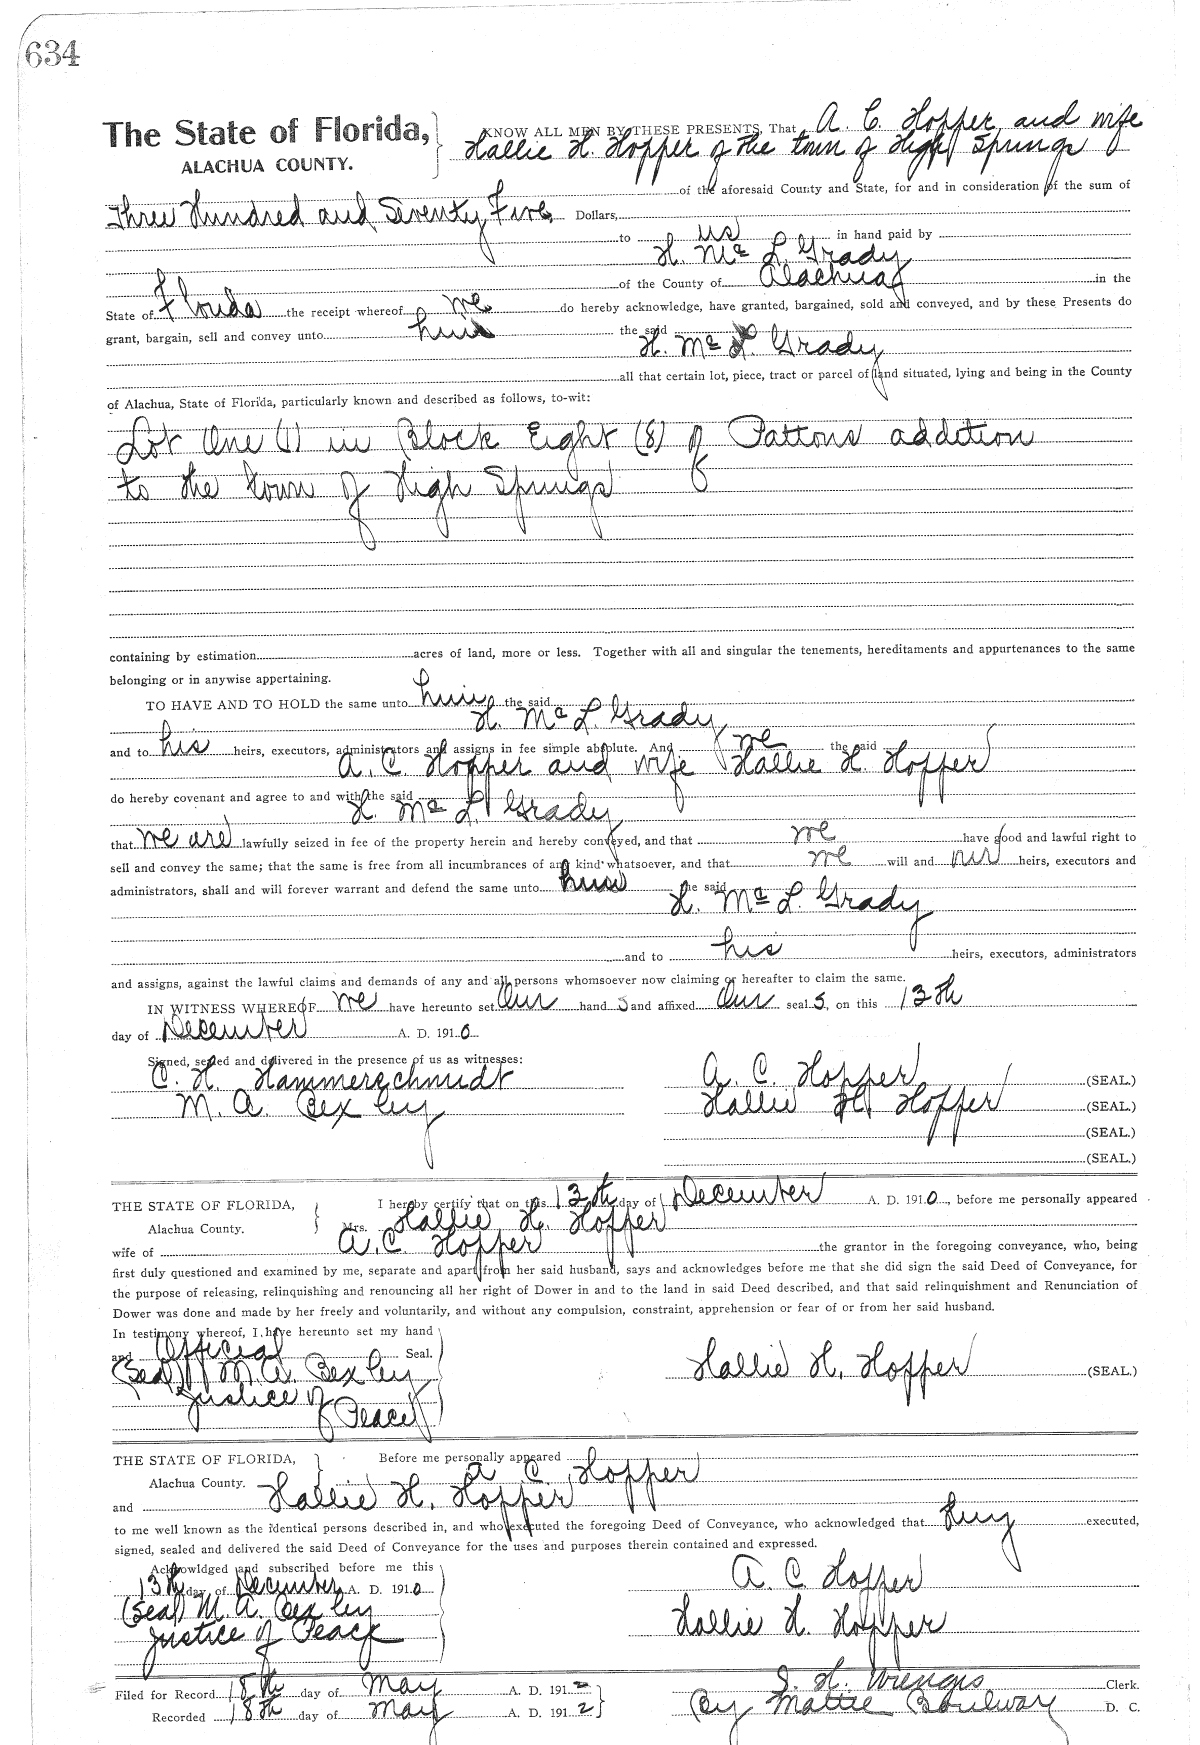 634
The State of Florida, KNOW ALL MEN BY THESE PRESENTS, That A. C. Hopper and wife
ALACHUA COUNTY. Hallie H. Hopper of the town of High Springs
of the aforesaid County and State, for and in consideration of the sum of
Three Hundred and Seventy Five Dollars,
to us in hand paid by
H. Mc L. Grady
of the County of Alachua in the
State of Florida the receipt whereof we do hereby acknowledge, have granted, bargained, sold and conveyed, and by these Presents do
grant, bargain, sell and convey unto him the said
H. Mc L. Grady
all that certain lot, piece, tract or parcel of land situated, lying and being in the County
of Alachua, State of Florida, particularly known and described as follows, to-wit:
Lot One (1) in Block Eight (8) of Pattons addition
to the town of High Springs
containing by estimation acres of land, more or less. Together with all and singular the tenements, hereditaments and appurtenances to the same
belonging or in anywise appertaining.
TO HAVE AND TO HOLD the same unto him the said
H. Mc L. Grady
and to his heirs, executors, administrators and assigns in fee simple absolute. And we the said
A. C. Hopper and wife Hallie H Hopper
do hereby covenant and agree to and with the said
H. Mc L. Grady
that we are lawfully seized in fee of the property herein and hereby conveyed, and that we have good and lawful right to
sell and convey the same; that the same is free from all incumbrances of any kind whatsoever, and that we will and our heirs, executors and
administrators, shall and will forever warrant and defend the same unto him the said
H. Mc L. Grady
and to his heirs, executors, administrators
and assigns, against the lawful claims and demands of any and all persons whomsoever now claiming or hereafter to claim the same.
IN WITNESS WHEREOF we have hereunto set our hand s and affixed our seal s, on this 13th
day of December A. D. 1910
Signed, sealed and delivered in the presence of us as witnesses:
C. H. Hammerschmidt A. C. Hopper (SEAL.)
M. A. Bexley Hallie H. Hopper (SEAL.)
(SEAL.)
(SEAL.)
THE STATE OF FLORIDA, I hereby certify that on this 13th day of December A. D. 1910, before me personally appeared
Alachua County. Mrs. Hallie H. Hopper
wife of A. C Hopper the grantor in the foregoing conveyance, who, being
first duly questioned and examined by me, separate and apart from her said husband, says and acknowledges before me that she did sign the said Deed of Conveyance, for
the purpose of releasing, relinquishing and renouncing all her right of Dower in and to the land in said Deed described, and that said relinquishment and Renunciation of
Dower was done and made by her freely and voluntarily, and without any compulsion, constraint, apprehension or fear of or from her said husband.
In testimony whereof, I have hereunto set my hand
and Official Seal.
(Seal) M. A. Bexley Hallie H. Hopper (SEAL)
Justice of
Peace
THE STATE OF FLORIDA, Before me personally appeared
Alachua County. A C Hopper
and Hallie H. Hopper
to me well known as the identical persons described in, and who executed the foregoing Deed of Conveyance, who acknowledged that they executed,
signed, sealed and delivered the said Deed of Conveyance for the uses and purposes therein contained and expressed.
Acknowldged and subscribed before me this
13th day of December A. D. 1910 A. C Hopper
(Seal) M. A. Bexley Hallie H. Hopper
Justice of Peace
Filed for Record 18th day of May A. D. 1912 S. H. Wienges Clerk.
Recorded 18th day of May A. D. 1912 By Mattie Boulware D. C.